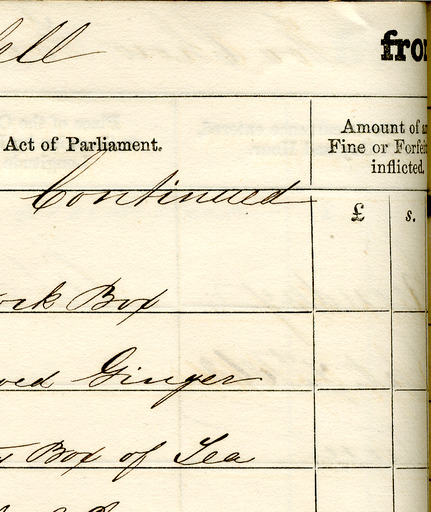 fro
Act of Parliament.
Amount of a
Fine or Forfei
inflicted.
Continued
£ s.
ork Box
ved Ginger
Box of Tea